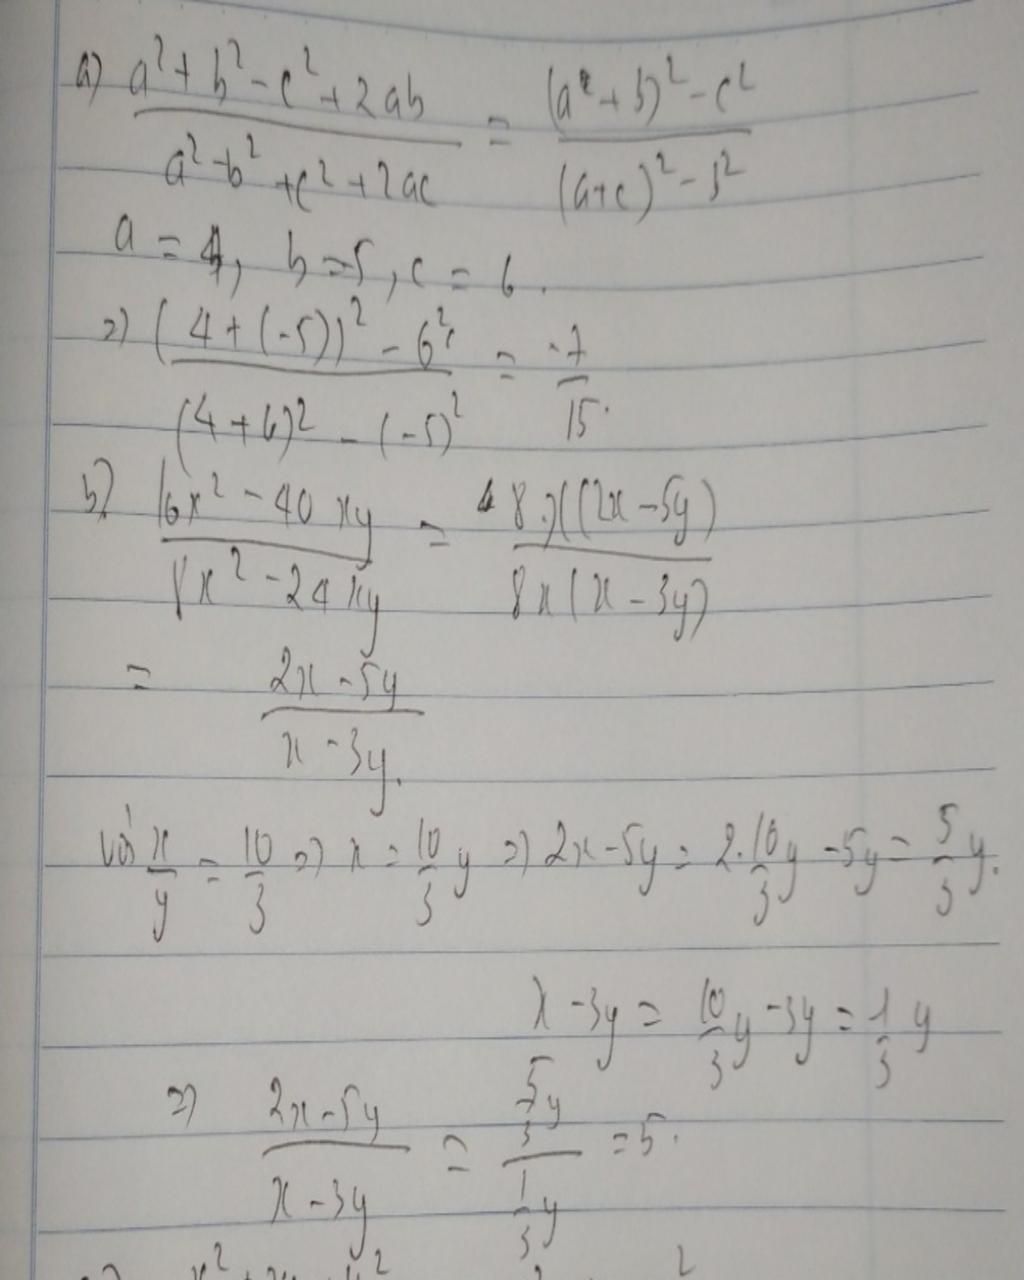 a) (a² + b² - c² + 2ab)/(a² - b² + c² + 2ac) = ((a² + b)² - c²)/((a+c)² - b²)
a = 4, b = 5, c = 6.
=) ((4 + (-5))² - 6²)/((4 + 6)² - (-5)²) = -7/15.
b) (16x² - 40xy)/(8x² - 24xy) = 8x(2x - 5y)/8x(x - 3y)
= (2x - 5y)/(x - 3y).
với x/y = 10/3 => x = 10/3 y => 2x - 5y = 2.10/3 y - 5y = 5/3 y.
x - 3y = 10/3 y - 3y = 1/3 y
=) (2x - 5y)/(x - 3y) = (5/3 y)/(1/3 y) = 5.